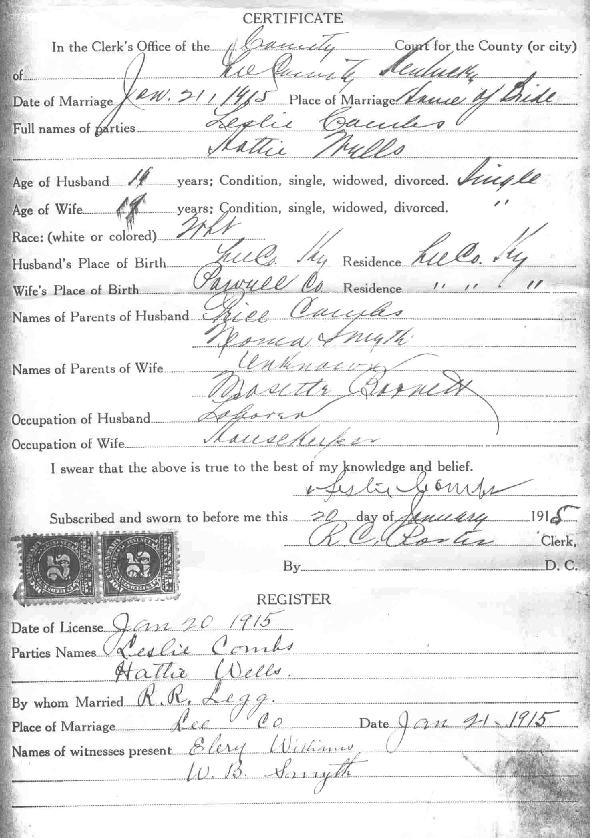 CERTIFICATE
In the Clerk's Office of the County Court for the County (or city)
of Lee County Kentucky
Date of Marriage Jan. 21, 1915 Place of Marriage Home of Bride
Full names of parties Leslie Combs
Hattie Wells
Age of Husband years; Condition, single, widowed, divorced. Single
Age of Wife years; Condition, single, widowed, divorced. "
Race: (white or colored) Wht
Husband's Place of Birth Lee Co. Ky Residence Lee Co. Ky
Wife's Place of Birth Powell Co Residence " " " "
Names of Parents of Husband Combs
Smyth
Names of Parents of Wife Unknown
Rosette Barnett
Occupation of Husband Laborer
Occupation of Wife Housekeeper
I swear that the above is true to the best of my knowledge and belief.
x Leslie Combs
Subscribed and sworn to before me this 20 day of January 1915
R. C. Clerk,
By D. C.
25 25
REGISTER
Date of License Jan 20 1915
Parties Names Leslie Combs
Hattie Wells.
By whom Married R. R. Legg.
Place of Marriage Lee Co Date Jan 21-1915
Names of witnesses present Elery Williams
W. B. Smyth